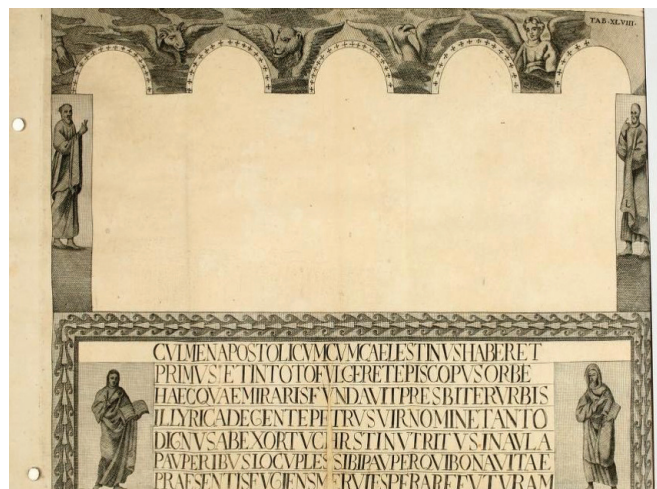 TAB·XLVIII·
CVLMENAPOSTOLICVMCVMCAELESTINVSHABERET
PRIMVSETINTOTOFVLGERETEPISCOPVSORBE
HAECQVAEMIRARISFVNDAVITPRESBITERVRBIS
ILLYRICADEGENTEPETRVSVIRNOMINETANTO
DIGNVSABEXORTVCHRSTINVTRITVSINAVLA
PAVPERIBVSLOCVPLESSIBIPAVPERQVIBONAVITAE
PRAESENTISFVGIENSMERVITESPERAREFVTVRAM